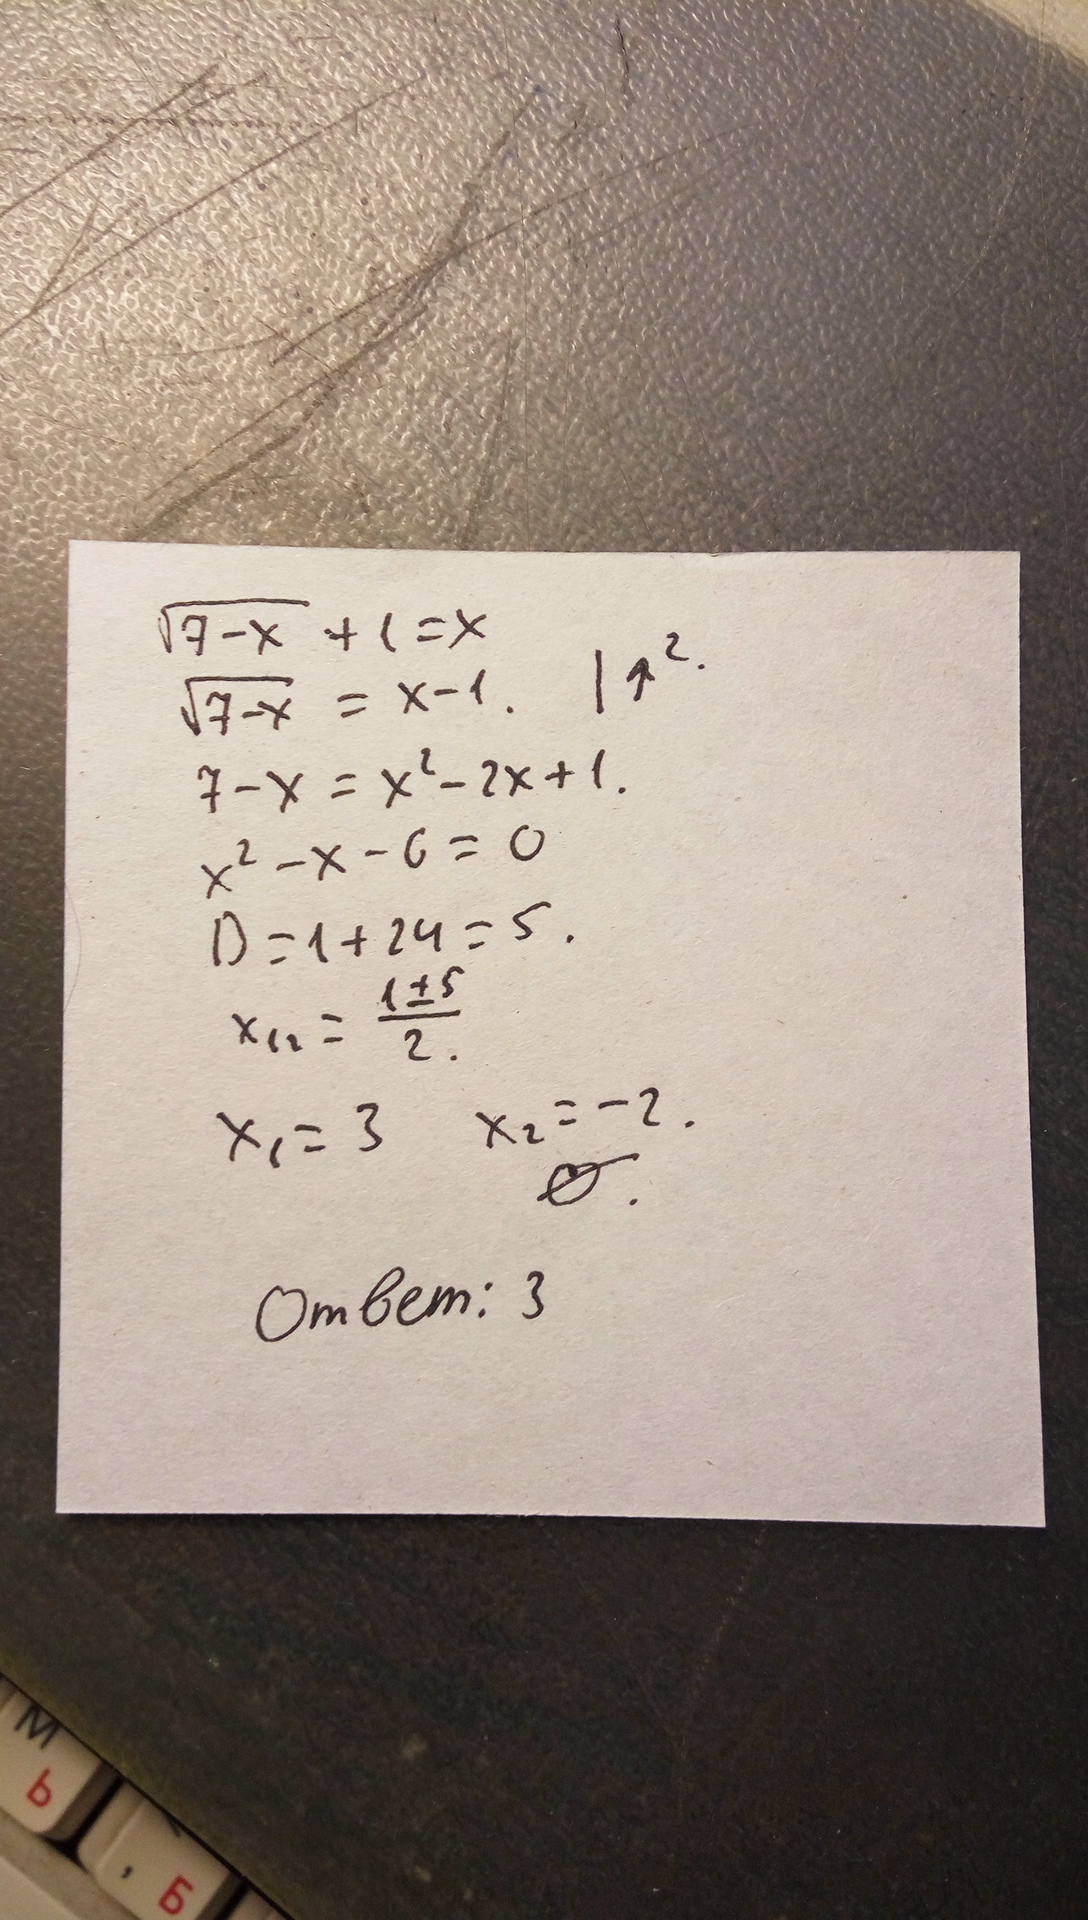 √7-x + 1 = x
√7-x = x-1. | ↑².
7-x = x²-2x+1.
x²-x-6=0
D=1+24=5.
x₁₂ = (1±5)/2.
x₁=3 x₂=-2.
∅.
Ответ: 3
М
Ь
,
Б